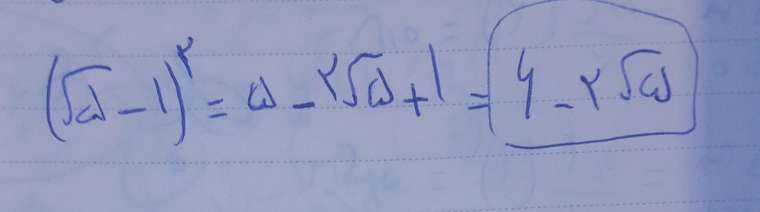 (√۵ - ۱)^۲ = ۵ - ۲√۵ + ۱ = ۶ - ۲√۵